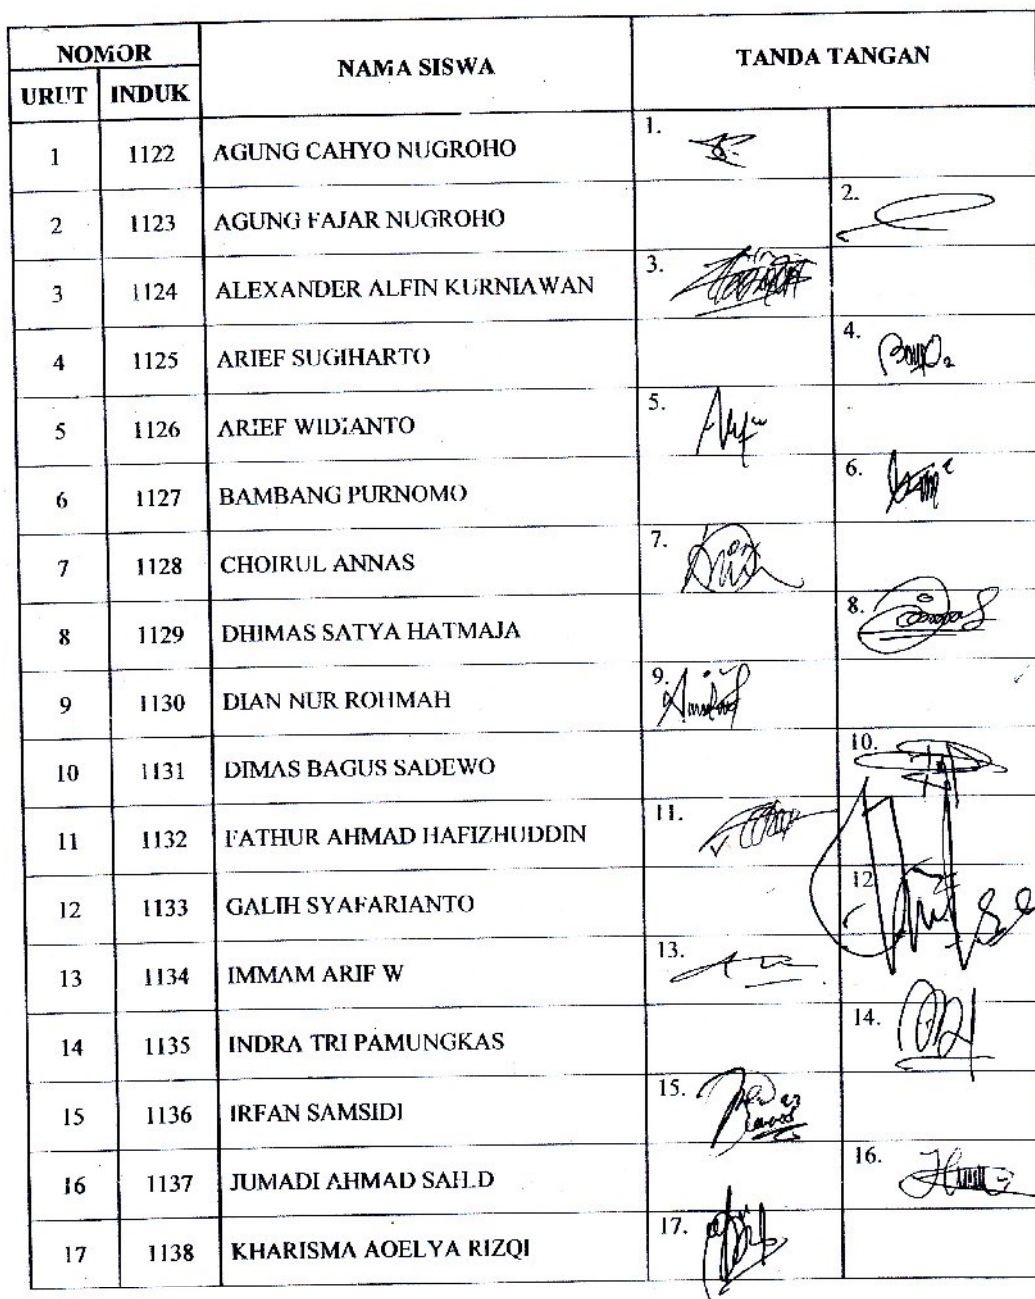 NOMOR NAMA SISWA TANDA TANGAN
URUT INDUK
1 1122 AGUNG CAHYO NUGROHO 1.
2 1123 AGUNG FAJAR NUGROHO 2.
3 1124 ALEXANDER ALFIN KURNIAWAN 3.
4 1125 ARIEF SUGIHARTO 4.
5 1126 ARIEF WIDIANTO 5.
6 1127 BAMBANG PURNOMO 6.
7 1128 CHOIRUL ANNAS 7.
8 1129 DHIMAS SATYA HATMAJA 8.
9 1130 DIAN NUR ROHMAH 9.
10 1131 DIMAS BAGUS SADEWO 10.
11 1132 FATHUR AHMAD HAFIZHUDDIN 11.
12 1133 GALIH SYAFARIANTO 12
13 1134 IMMAM ARIF W 13.
14 1135 INDRA TRI PAMUNGKAS 14.
15 1136 IRFAN SAMSIDI 15.
16 1137 JUMADI AHMAD 16.
17 1138 KHARISMA AOELYA RIZQI 17.